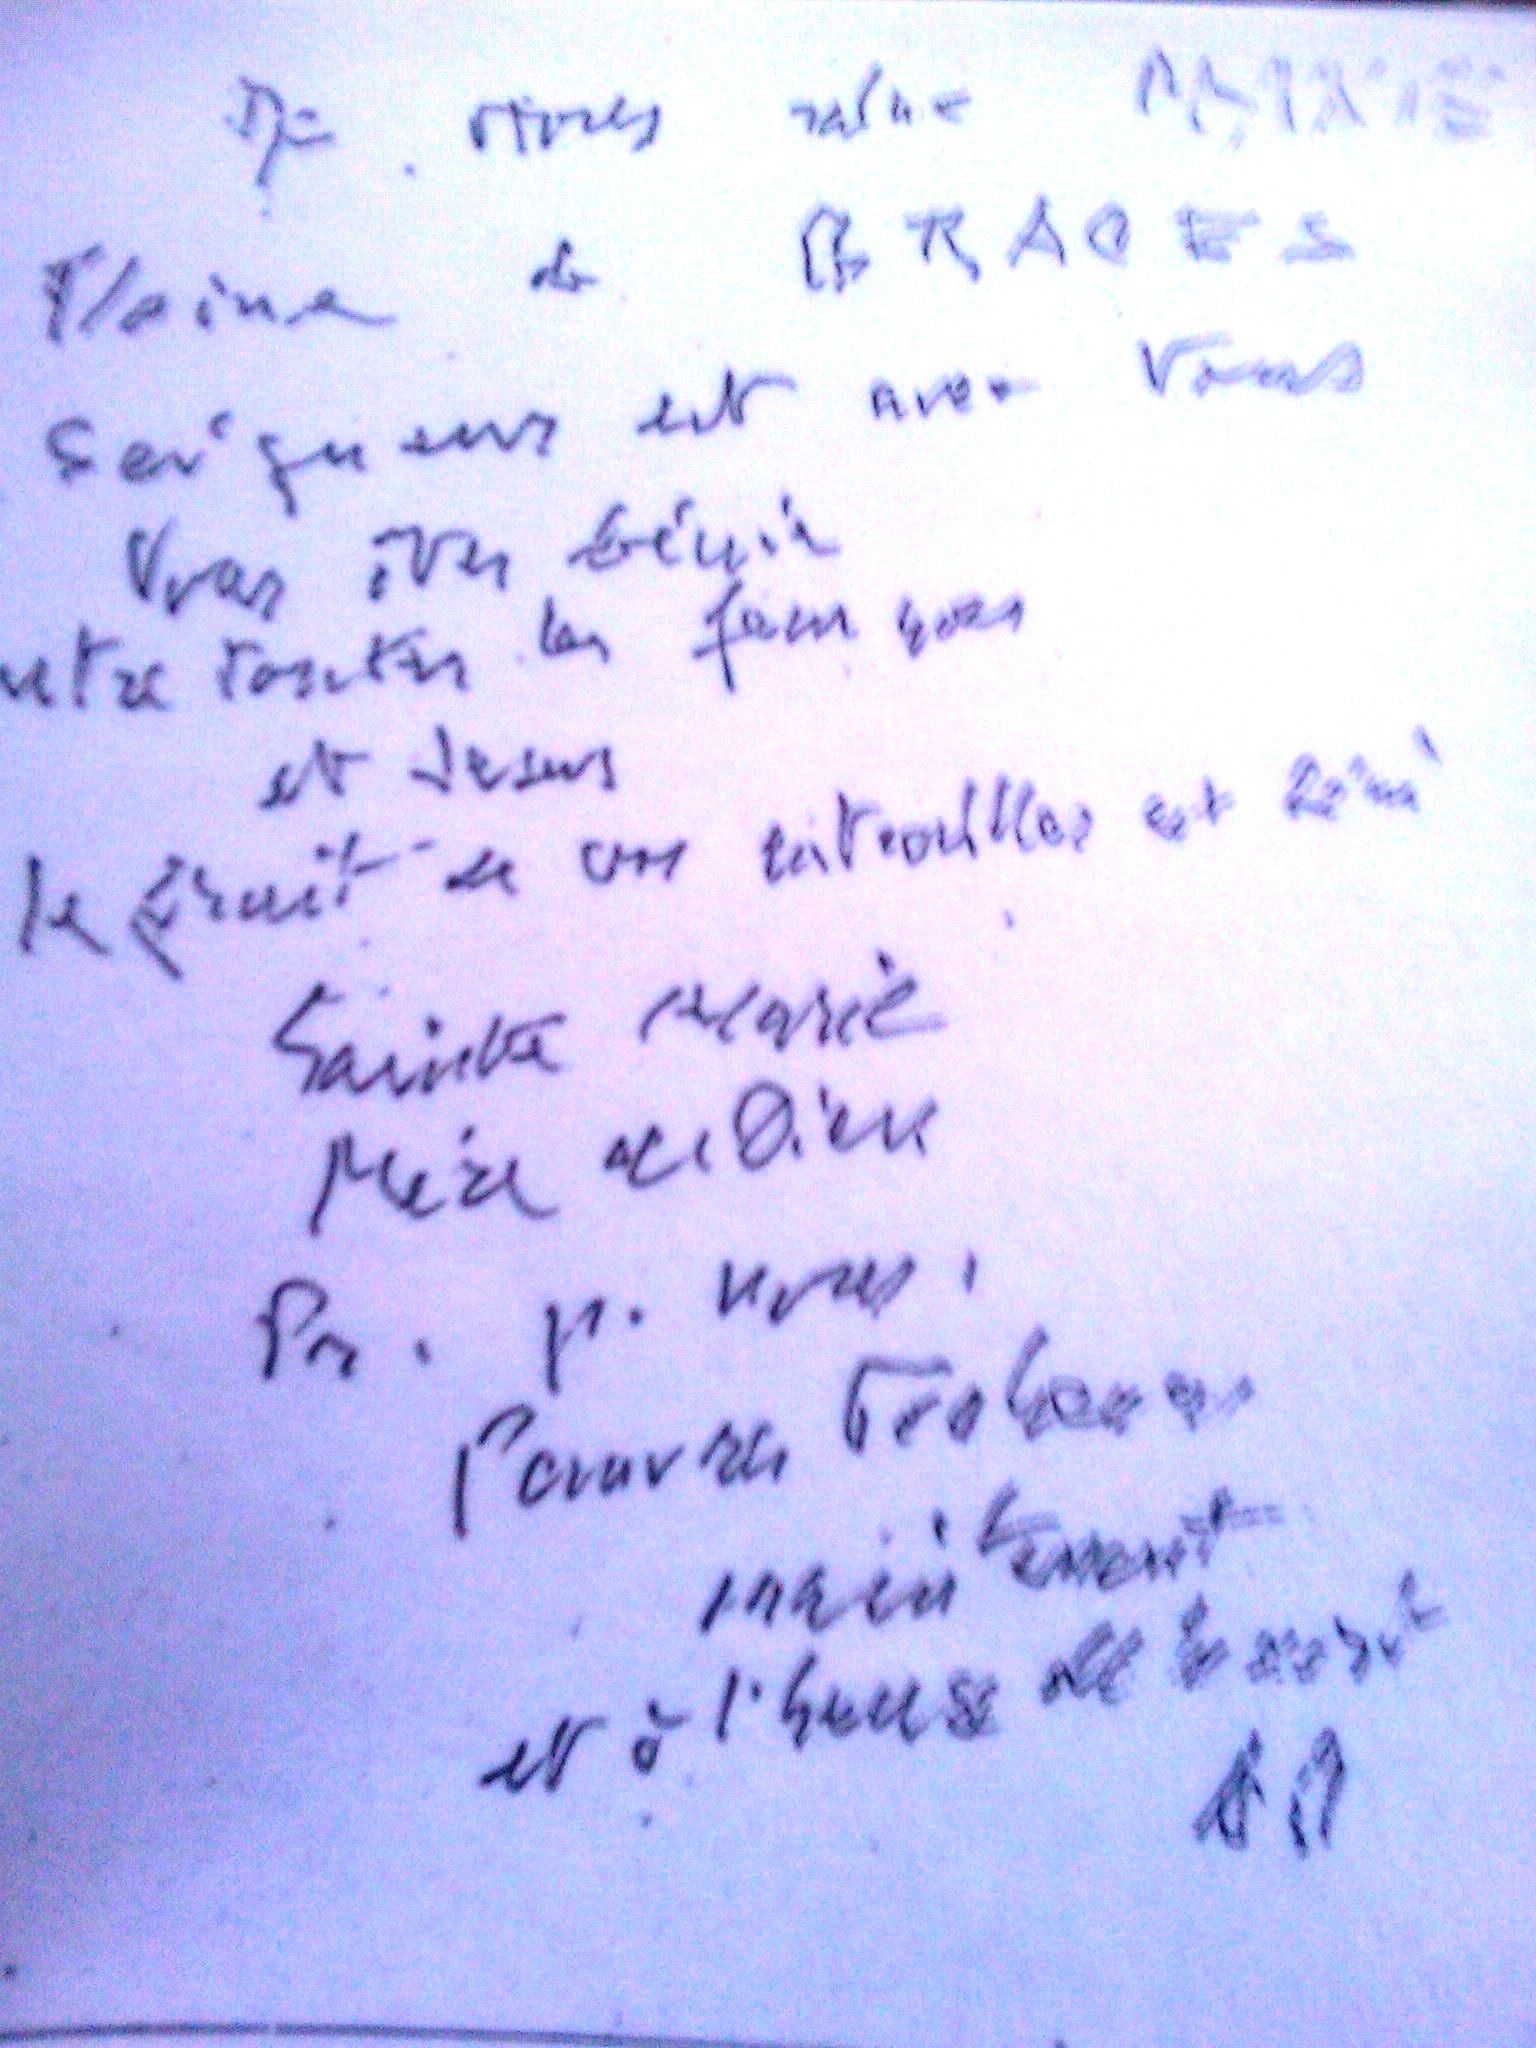 Je vous salue MARIE
Pleine de GRACES
Seigneur est avec Vous
Vous êtes bénie
entre toutes les femmes
et Jesus
le fruit de vos entrailles est béni
Sainte Marie
Mère de Dieu
Pr. p. nous.
Pauvres Pecheurs
maintenant
et à l'heure de la mort